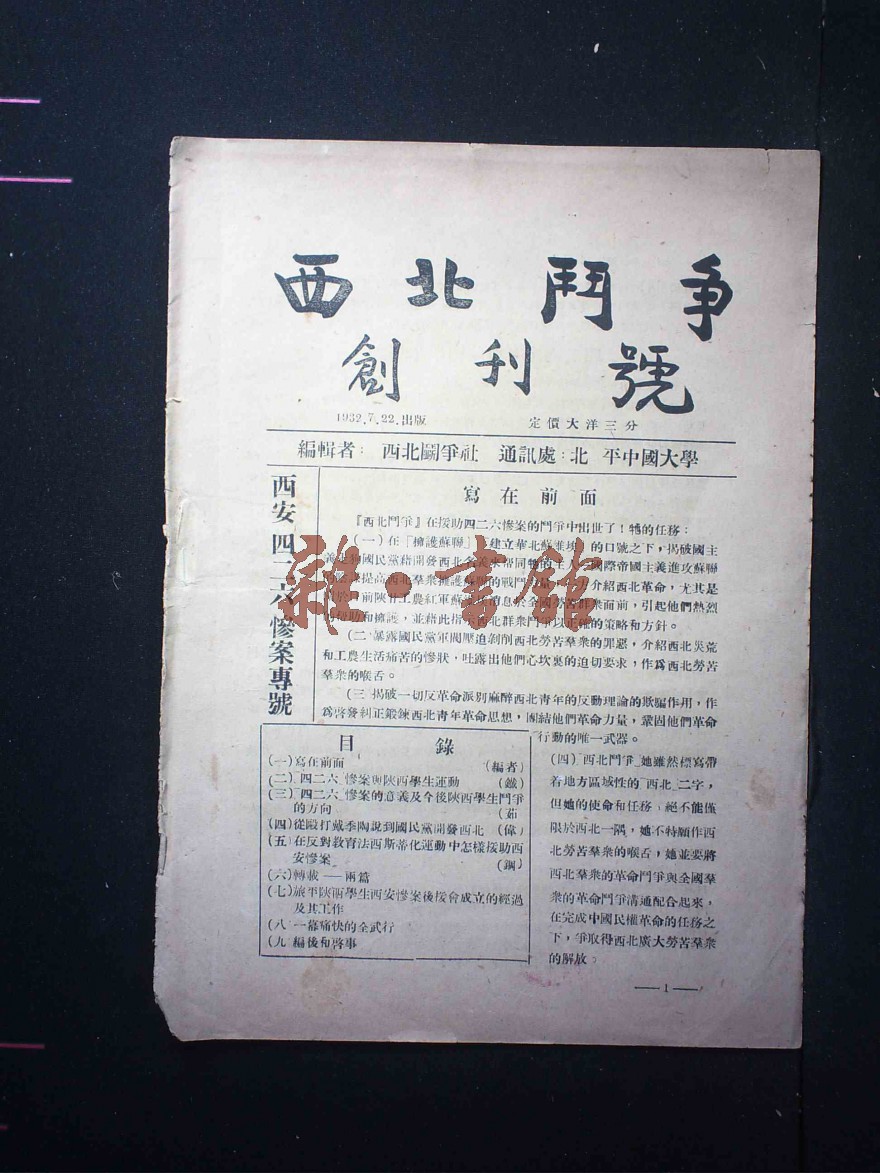 西北鬥爭
創刊號
1932.7.22.出版 定價大洋三分
編輯者: 西北鬭爭社 通訊處:北 平中國大學
西安四二六慘案專號
寫在前面
『西北鬥爭』在援助四二六慘案的鬥爭中出世了!牠的任務:
(一)在「擁護蘇聯」「建立華北蘇維埃」的口號之下,揭破國主
國民黨藉開發西北 帶同牠的主人 國際帝國主義進攻蘇聯
提高西北羣衆擁護蘇聯的戰鬥 介紹西北革命,尤其是
目前陝甘工農紅軍蘇維埃消息於全國勞苦群衆面前,引起他們熱烈
助和擁護,並藉此指示西北群衆鬥爭以正確的策略和方針。
(二)暴露國民黨軍閥壓迫剝削西北勞苦羣衆的罪惡,介紹西北災荒
和工農生活痛苦的慘狀,吐露出他們心坎裏的迫切要求,作爲西北勞苦
羣衆的喉舌。
(三)揭破一切反革命派別麻醉西北青年的反動理論的欺騙作用,作
爲啓發糾正鍛鍊西北青年革命思想,團結他們革命力量,鞏固他們革命
行動的唯一武器。
(四)西北鬥爭 她雖然標寫帶
着地方區域性的「西北」二字,
但她的使命和任務 絕不能僅
限於西北一隅,她不特願作西
北勞苦羣衆的喉舌,她並要將
西北羣衆的革命鬥爭與全國羣
衆的革命鬥爭溝通配合起來,
在完成中國民權革命的任務之
下,爭取得西北廣大勞苦羣衆
的解放。
目 錄
(一)寫在前面 (編者)
(二)「四二六」慘案與陝西學生運動 (鐵)
(三)「四二六」慘案的意義及今後陝西學生鬥爭
的方向 (茹)
(四)從毆打戴季陶說到國民黨開發西北 (偉)
(五)在反對教育法西斯蒂化運動中怎樣援助西
安慘案 (鋼)
(六)轉載——兩篇
(七)旅平陝西學生西安慘案後援會成立的經過
及其工作
(八)一幕痛快的全武行
(九)編後和啓事
——1——
雜·書館